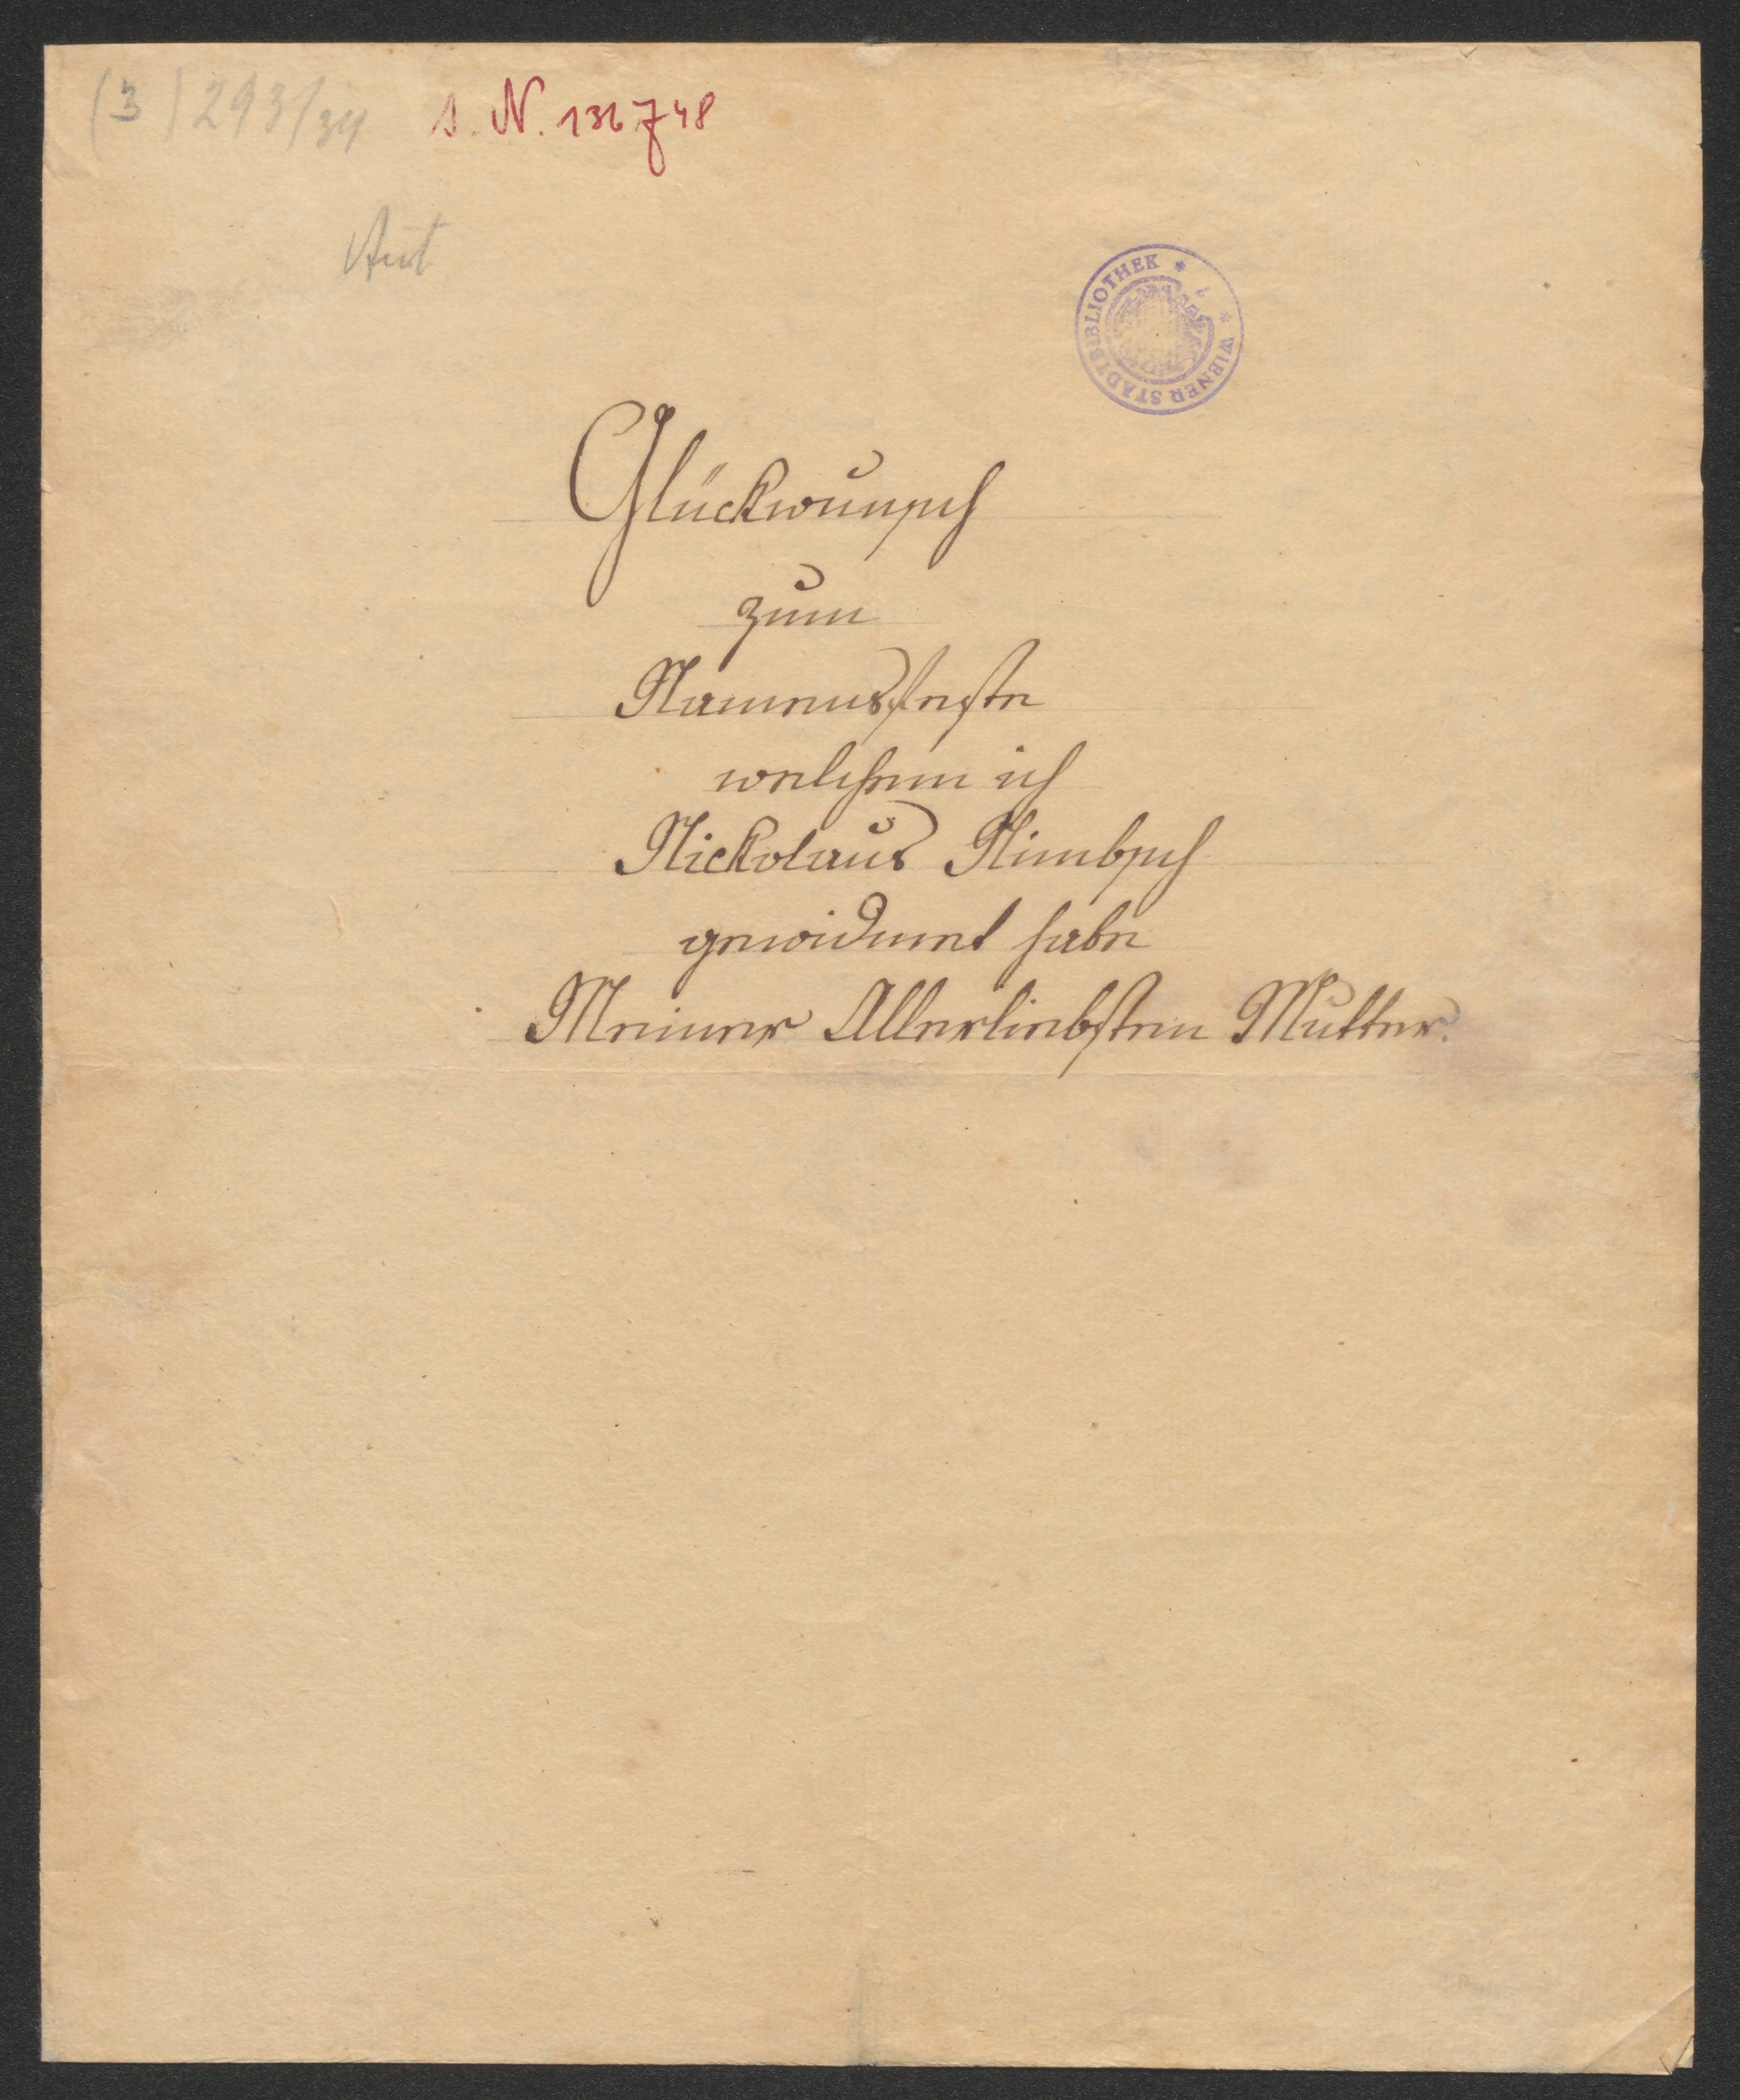 (3) 293/34 I. N. 136748
Aut
* WIENER STADTBIBLIOTHEK *
Glückwunsch
zum
Namensfeste
welchem ich
Nickolaus Nimbsch
gewidmet habe
Meiner Allerliebsten Mutter.